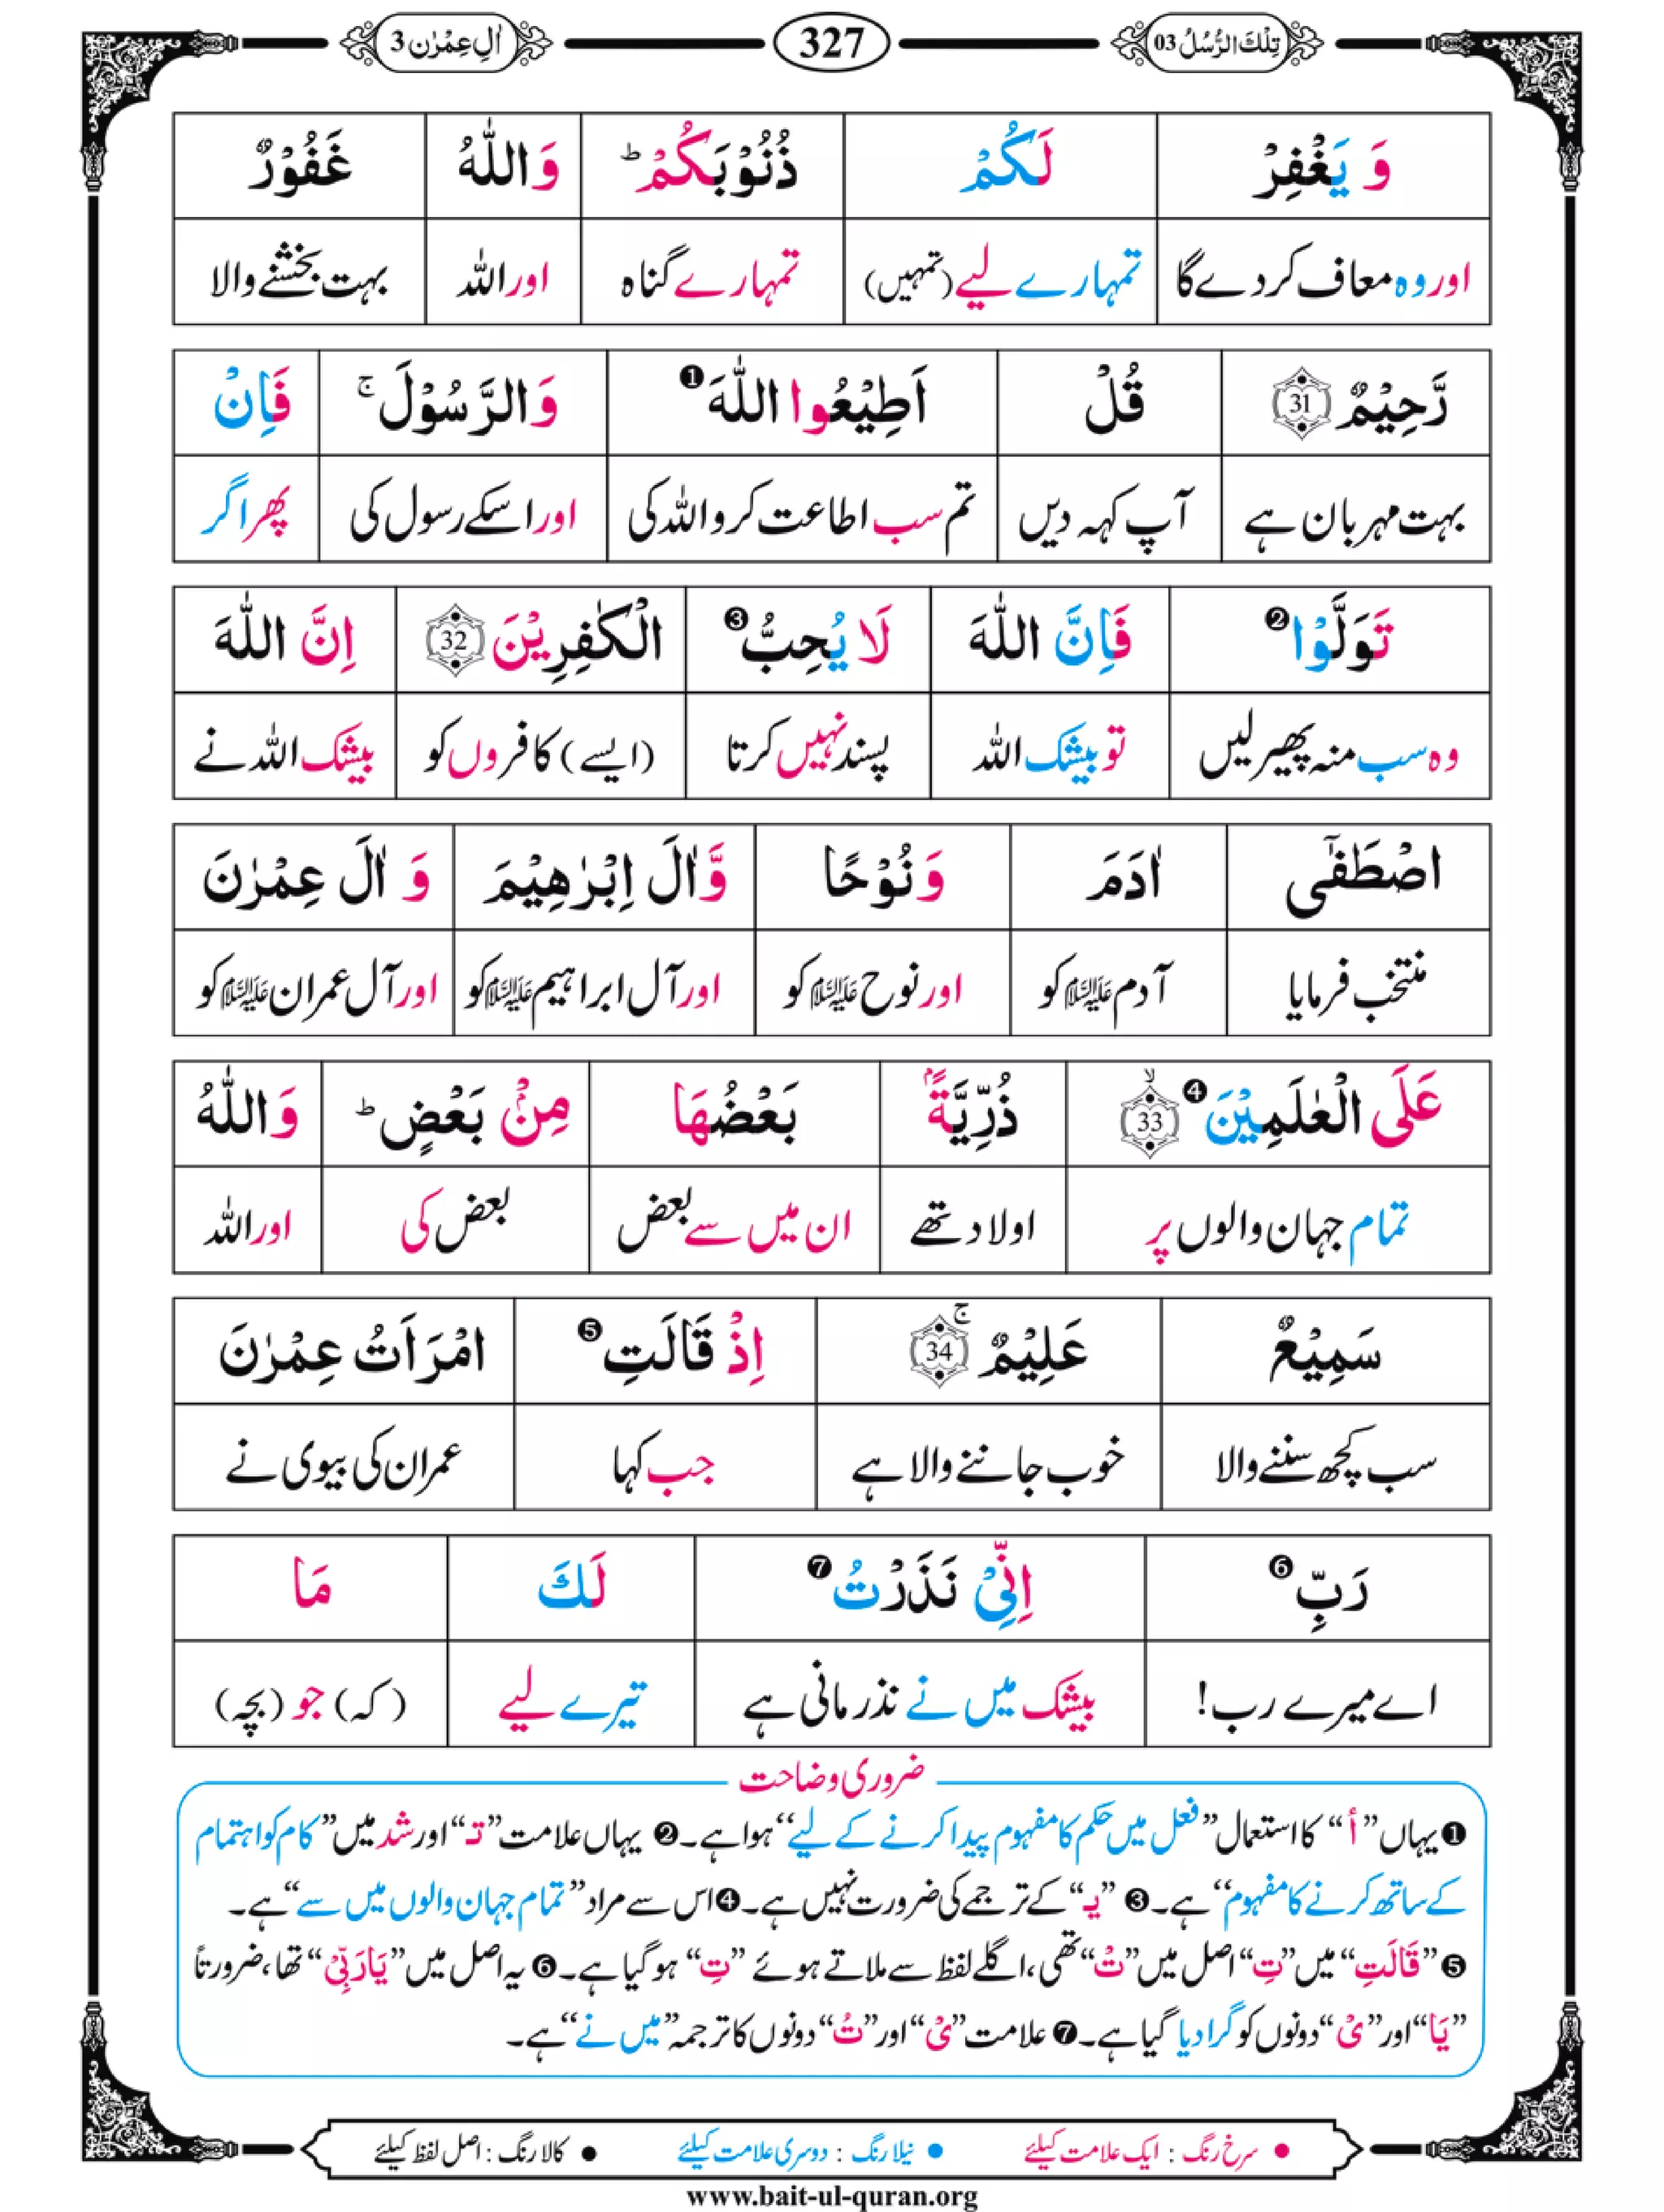 تِلْكَ الرُّسُلُ 03 327 اٰلِ عِمْرٰن 3
وَ يَغْفِرْ لَكُمْ ذُنُوْبَكُمْ ؕ وَاللّٰهُ غَفُوْرٌ
اور وہ معاف کر دے گا تمہارے لیے (تمہیں) تمہارے گناہ اور اللہ بہت بخشنے والا
رَّحِيْمٌ 31 قُلْ اَطِيْعُوا اللّٰهَ ❶ وَالرَّسُوْلَ ۚ فَاِنْ
بہت مہربان ہے آپ کہہ دیں تم سب اطاعت کرو اللہ کی اور اسکے رسول کی پھر اگر
تَوَلَّوْا ❷ فَاِنَّ اللّٰهَ لَا يُحِبُّ ❸ الْكٰفِرِيْنَ 32 اِنَّ اللّٰهَ
وہ سب منہ پھیر لیں تو بیشک اللہ پسند نہیں کرتا (ایسے) کافروں کو بیشک اللہ نے
اصْطَفٰٓى اٰدَمَ وَ نُوْحًا وَّ اٰلَ اِبْرٰهِيْمَ وَ اٰلَ عِمْرٰنَ
منتخب فرمایا آدم علیہ السلام کو اور نوح علیہ السلام کو اور آل ابراہیم علیہ السلام کو اور آل عمران علیہ السلام کو
عَلَى الْعٰلَمِيْنَ ❹ 33 ۙ ذُرِّيَّةًۢ بَعْضُهَا مِنْۢ بَعْضٍ ؕ وَاللّٰهُ
تمام جہان والوں پر اولاد تھے ان میں سے بعض بعض کی اور اللہ
سَمِيْعٌ عَلِيْمٌ 34 ۚ اِذْ قَالَتِ ❺ امْرَاَتُ عِمْرٰنَ
سب کچھ سننے والا خوب جاننے والا ہے جب کہا عمران کی بیوی نے
رَبِّ ❻ اِنِّىْ نَذَرْتُ ❼ لَكَ مَا
اے میرے رب! بیشک میں نے نذر مانی ہے تیرے لیے (کہ) جو (بچہ)
ضروری وضاحت
❶ یہاں ”أ“ کا استعمال ”فعل میں حکم کا مفہوم پیدا کرنے کے لیے“ ہوا ہے۔ ❷ یہاں علامت ”تـ“ اور شد میں ”کام کو اہتمام
کے ساتھ کرنے کا مفہوم“ ہے۔ ❸ ”یـ“ کے ترجمے کی ضرورت نہیں ہے۔ ❹ اس سے مراد ”تمام جہان والوں میں سے“ ہے۔
❺ ”قَالَتِ“ میں ”تِ“ اصل میں ”تْ“ تھی، اگلے لفظ سے ملاتے ہوئے ”تِ“ ہو گیا ہے۔ ❻ یہ اصل میں ”يَارَبِّيْ“ تھا، ضرورتاً
”يَا“ اور ”يْ“ دونوں کو گرا دیا گیا ہے۔ ❼ علامت ”يْ“ اور ”تُ“ دونوں کا ترجمہ ”میں نے“ ہے۔
● سرخ رنگ : ایک علامت کیلئے ● نیلا رنگ : دوسری علامت کیلئے ● کالا رنگ : اصل لفظ کیلئے
www.bait-ul-quran.org